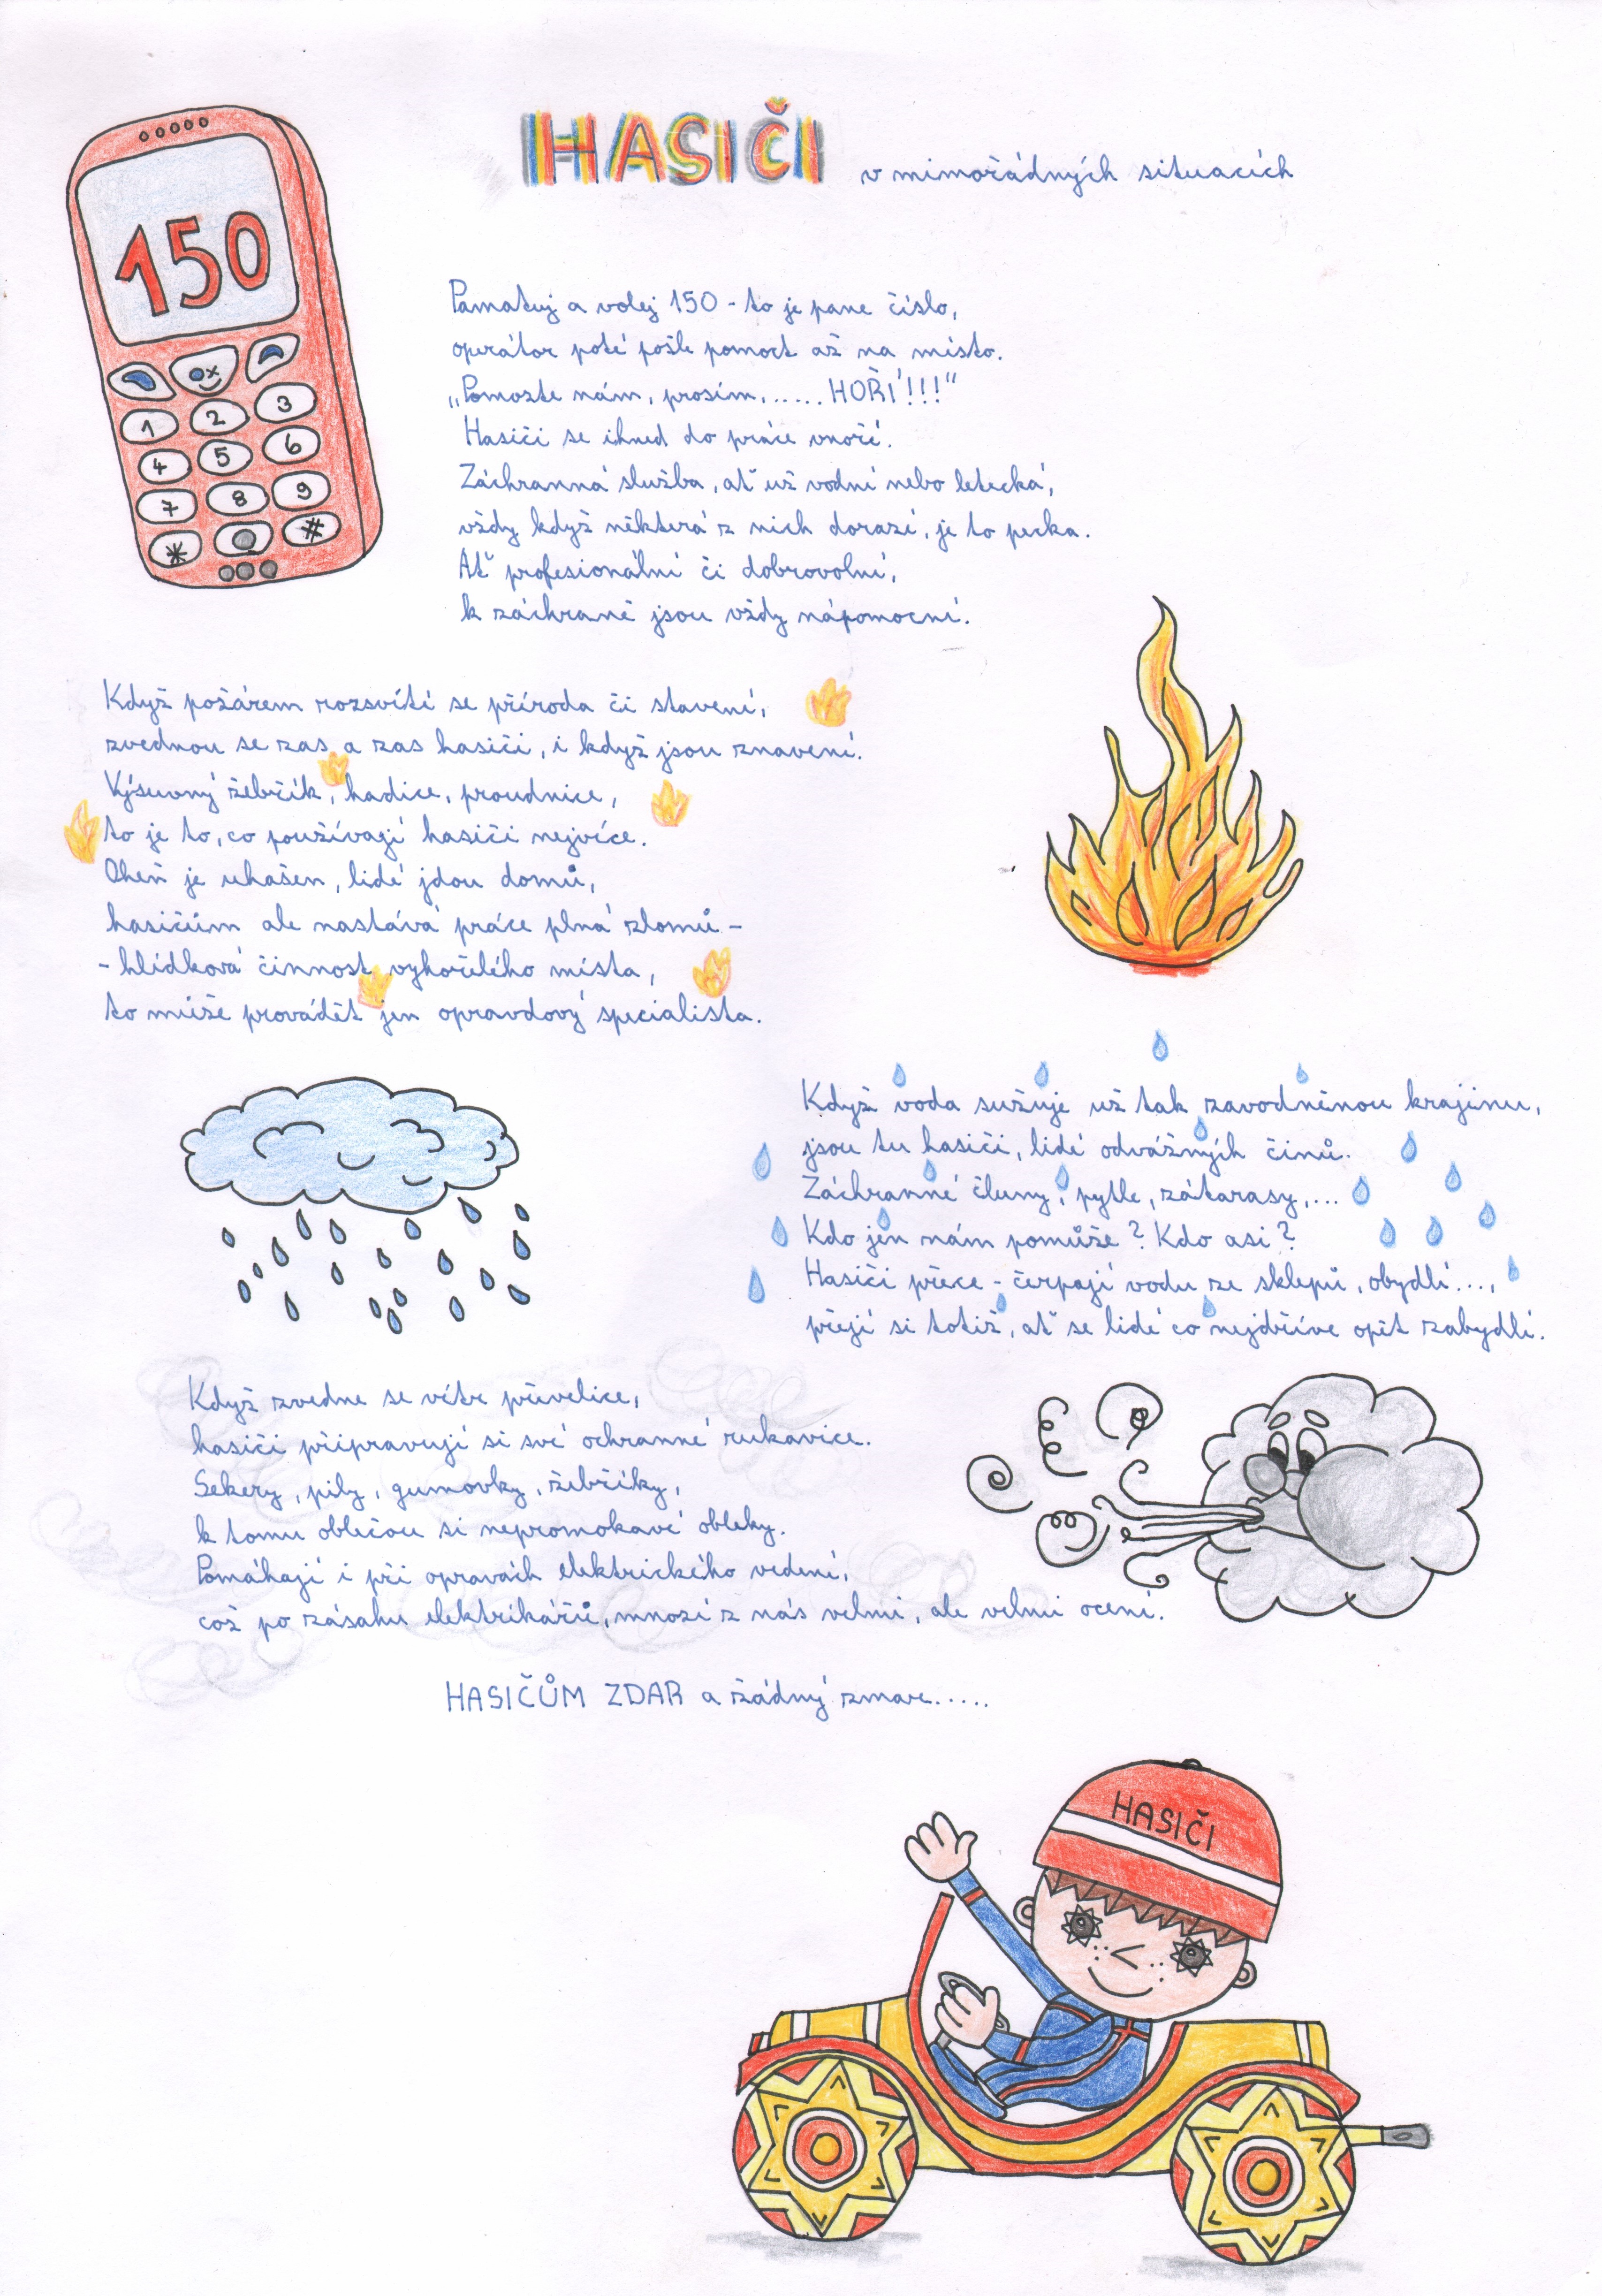 HASIČI v mimořádných situacích
150
1 2 3
4 5 6
7 8 9
* #
Pamatuj a volej 150 - to je pane číslo,
operátor poté pošle pomoct až na místo.
„Pomozte nám, prosím,..... HOŘÍ!!!"
Hasiči se ihned do práce vnoří.
Záchranná služba, ať už vodní nebo letecká,
vždy když některá z nich dorazí, je to pecka.
Ať profesionální či dobrovolní,
k záchraně jsou vždy nápomocní.
Když požárem rozsvítí se příroda či stavení,
zvednou se zas a zas hasiči, i když jsou znavení.
Výsuvný žebřík, hadice, proudnice,
to je to, co používají hasiči nejvíce.
Oheň je uhašen, lidé jdou domů,
hasičům ale nastává práce plná zlomů -
- hlídková činnost vyhořelého místa,
to může provádět jen opravdový specialista.
Když voda sužuje už tak zavodněnou krajinu,
jsou tu hasiči, lidé odvážných činů.
Záchranné čluny, pytle, zátarasy,...
Kdo jen nám pomůže? Kdo asi?
Hasiči přece - čerpají vodu ze sklepů, obydlí...,
přejí si totiž, ať se lidé co nejdříve opět zabydlí.
Když zvedne se vítr převelice,
hasiči připravují si své ochranné rukavice.
Sekery, pily, gumovky, žebříky,
k tomu oblečou si nepromokavé obleky.
Pomáhají i při opravách elektrického vedení,
což po zásahu elektrikářů, mnozí z nás velmi, ale velmi ocení.
HASIČŮM ZDAR a žádný zmar.....
HASIČI